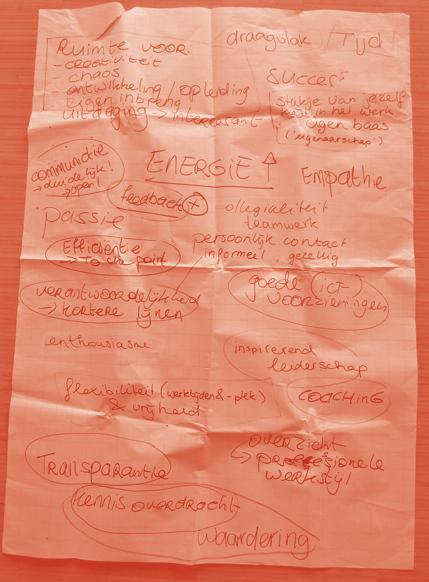 Ruimte voor:
- creativiteit
- chaos
- ontwikkeling / opleiding
- eigen inbreng
- uitdaging → interessant
draagvlak
Tijd!
Succes
Stukje van jezelf
kwijt in het werk
eigen baas
('eigenaarschap')
communicatie
→ duidelijk!
→ open!
ENERGIE ↑
Empathie
feedback +
passie
collegialiteit
teamwerk
persoonlijk contact
informeel, gezellig
Efficiëntie
→ To the point
verantwoordelijkheid
→ kortere lijnen
goede (ICT-)
voorzieningen
enthousiasme
inspirerend
leiderschap
flexibiliteit (werktijden & -plek)
& vrijheid
COACHING
overzicht
↳ professionele
werkstijl
Transparantie
Kennis overdracht
waardering